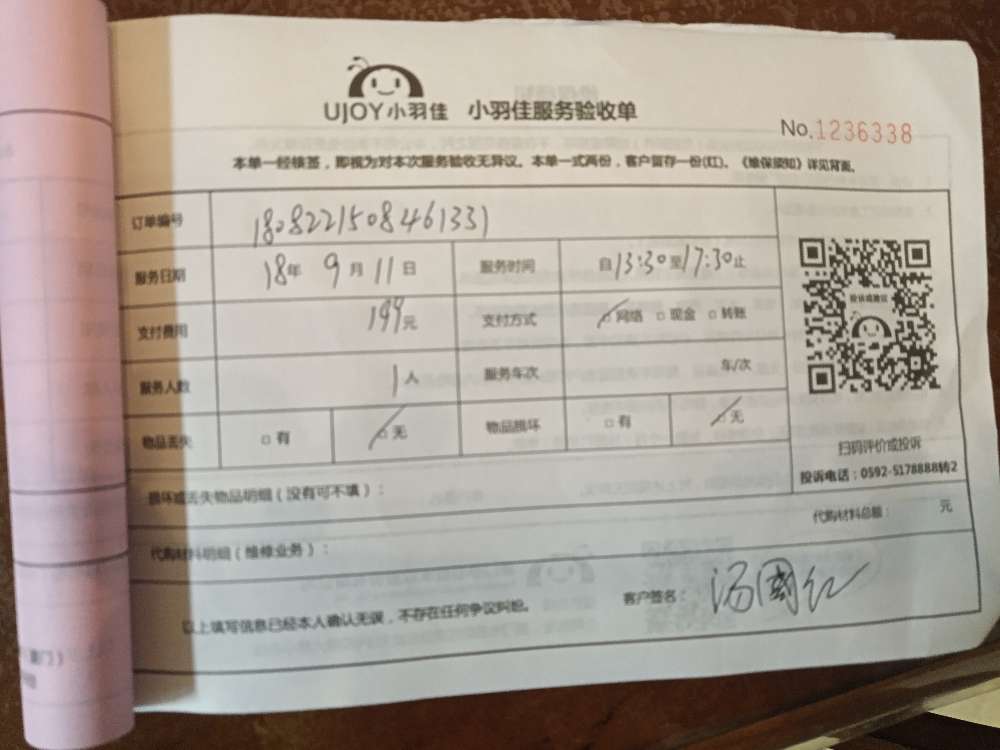 UJOY小羽佳 小羽佳服务验收单
No.1236338
本单一经核签，即视为对本次服务验收无异议。本单一式两份，客户留存一份(红)。《维保须知》详见背面。
订单编号 1808221508461331
服务日期 18年 9月 11日 服务时间 自13:30至17:30止
支付费用 199元 支付方式 □网络 □现金 □转账
服务人数 1人 服务车次 车/次
物品丢失 □有 □无 物品损坏 □有 □无
投诉或建议
扫码评价或投诉
投诉电话：0592-5178888转2
损坏或丢失物品明细（没有可不填）：
代购材料明细（维修业务）： 代购材料总额： 元
以上填写信息已经本人确认无误，不存在任何争议纠纷。 客户签名：汤国红